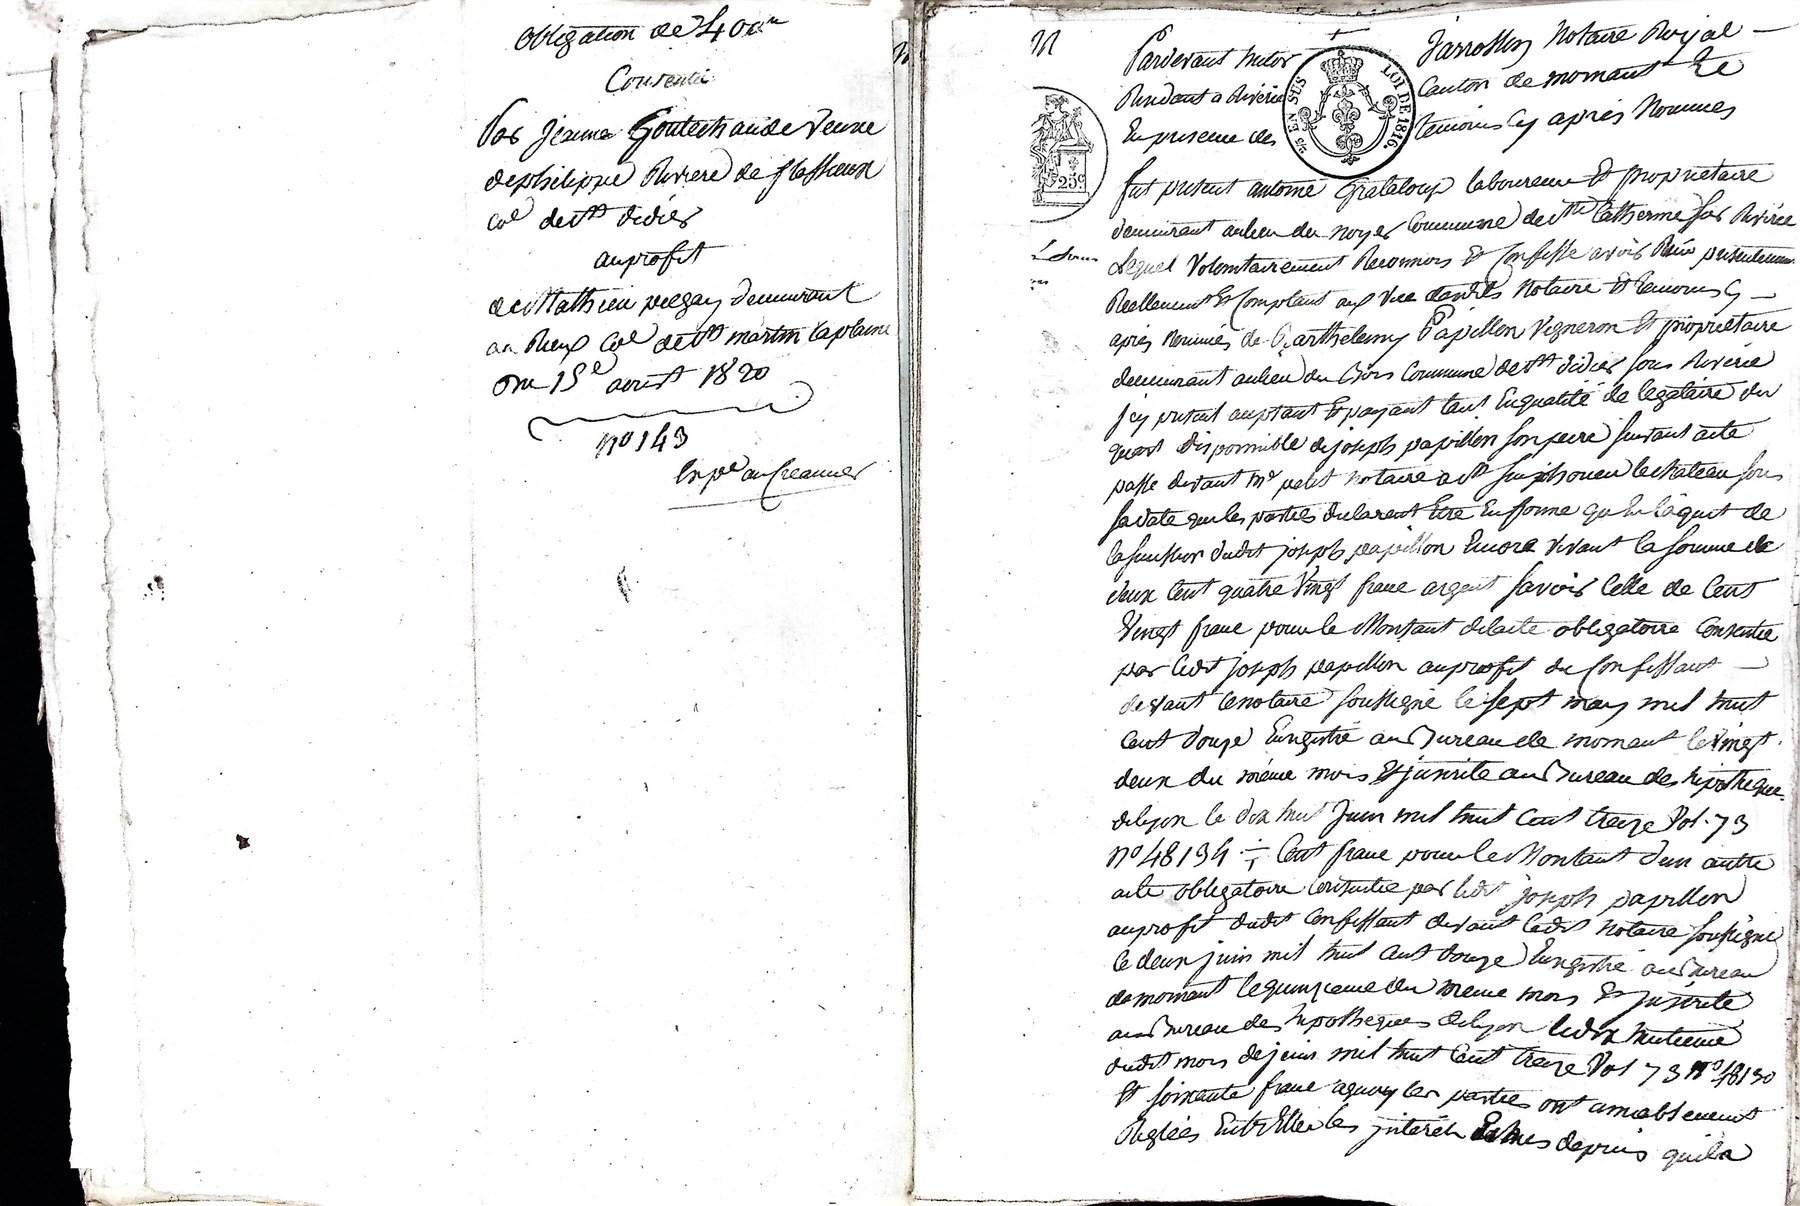 Obligation de 400 fr
Consentie
Par jeanne Goutechaude veuve
de philippe Riviere de flassieux
cne de st didier
au profit
de Mathieu demeurant
au Rieux cne de st martin laplaine
Du 15e aoust 1820
no 143
Exp.e au Creancier
Pardevant Jarrossin Notaire Royal
Residant a Riverie Canton de mornant Le
En presence des temoins cy après Nommes
25 EN SUS
LOI DE 1816.
25c
fut present antoine Grataloup laboureur Et proprietaire
demeurant au lieu du noyer Commune de ste Catherine sur Riverie
Lequel Volontairement Reconnois Et Confesse avoir Reçu presentement
Reellement Et Comptant aux vue desdits Notaire Et temoins cy
après Nommés de Barthelemy Papillon vigneron Et proprietaire
demeurant au lieu du Bois Commune de st didier sous Riverie
jcy present acceptant Et payant tant En qualité de legataire du
quart disponnible de joseph papillon son pere suivant acte
passe devant me petit notaire a st simphorien le chateau sous
sa date que les parties declarent Etre En forme qu'En l'aquit de
la succession dudit joseph papillon Encore vivant la somme de
deux Cent quatre Vingt franc argent savoir Celle de Cent
Vingt franc pour le Montant de l'acte obligatoire Consentie
par ledit joseph papillon au profit du Confessant
devant le notaire soussigné le sept may mil huit
Cent douze Enregistré au Bureau de mornant le Vingt
deux du même mois Et jnscrite au Bureau des hipotheque
de lyon le dix huit juin mil huit Cent treize Vol. 73
no 48134 Cent franc pour le Montant d'un autre
acte obligatoire Consentie par ledit joseph papillon
au profit dudit Confessant devant ledit Notaire soussigné
le deux juin mil huit Cent douze Enregistré au Bureau
de mornant le quinzieme du meme mois Et jnscrite
au Bureau des hipotheques de lyon le dix huitieme
dudit mois de juin mil huit Cent treize Vol 73 No 48130
Et soixante franc a quoy les parties ont amiablement
Reglées Entr'Elles les jnterêts Echus depuis qu'il a